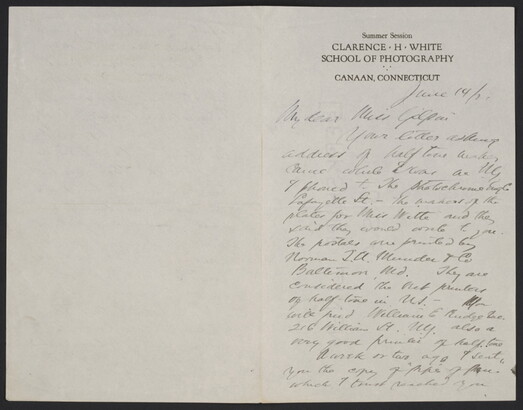 Summer Session
CLARENCE · H · WHITE
SCHOOL OF PHOTOGRAPHY
CANAAN, CONNECTICUT
June 14/21
My dear Miss Gilpin
Your letter asking
address of half tone
came while I was in NY
I phoned to The Photochrome Engr Co
Lafayette St. - the makers of the
plates for Miss Watts and they
said they would write to you.
The postals are printed by
Norman T. A. Munder & Co
Baltimore, Md. They are
considered the best printers
of half-tone in US. - You
will find William E. Rudge Inc.
216 William St. NY. also a
very good printer of half-tone
A week or two ago I sent
you the copy of "Pipes of Pan"
which I trust reached you